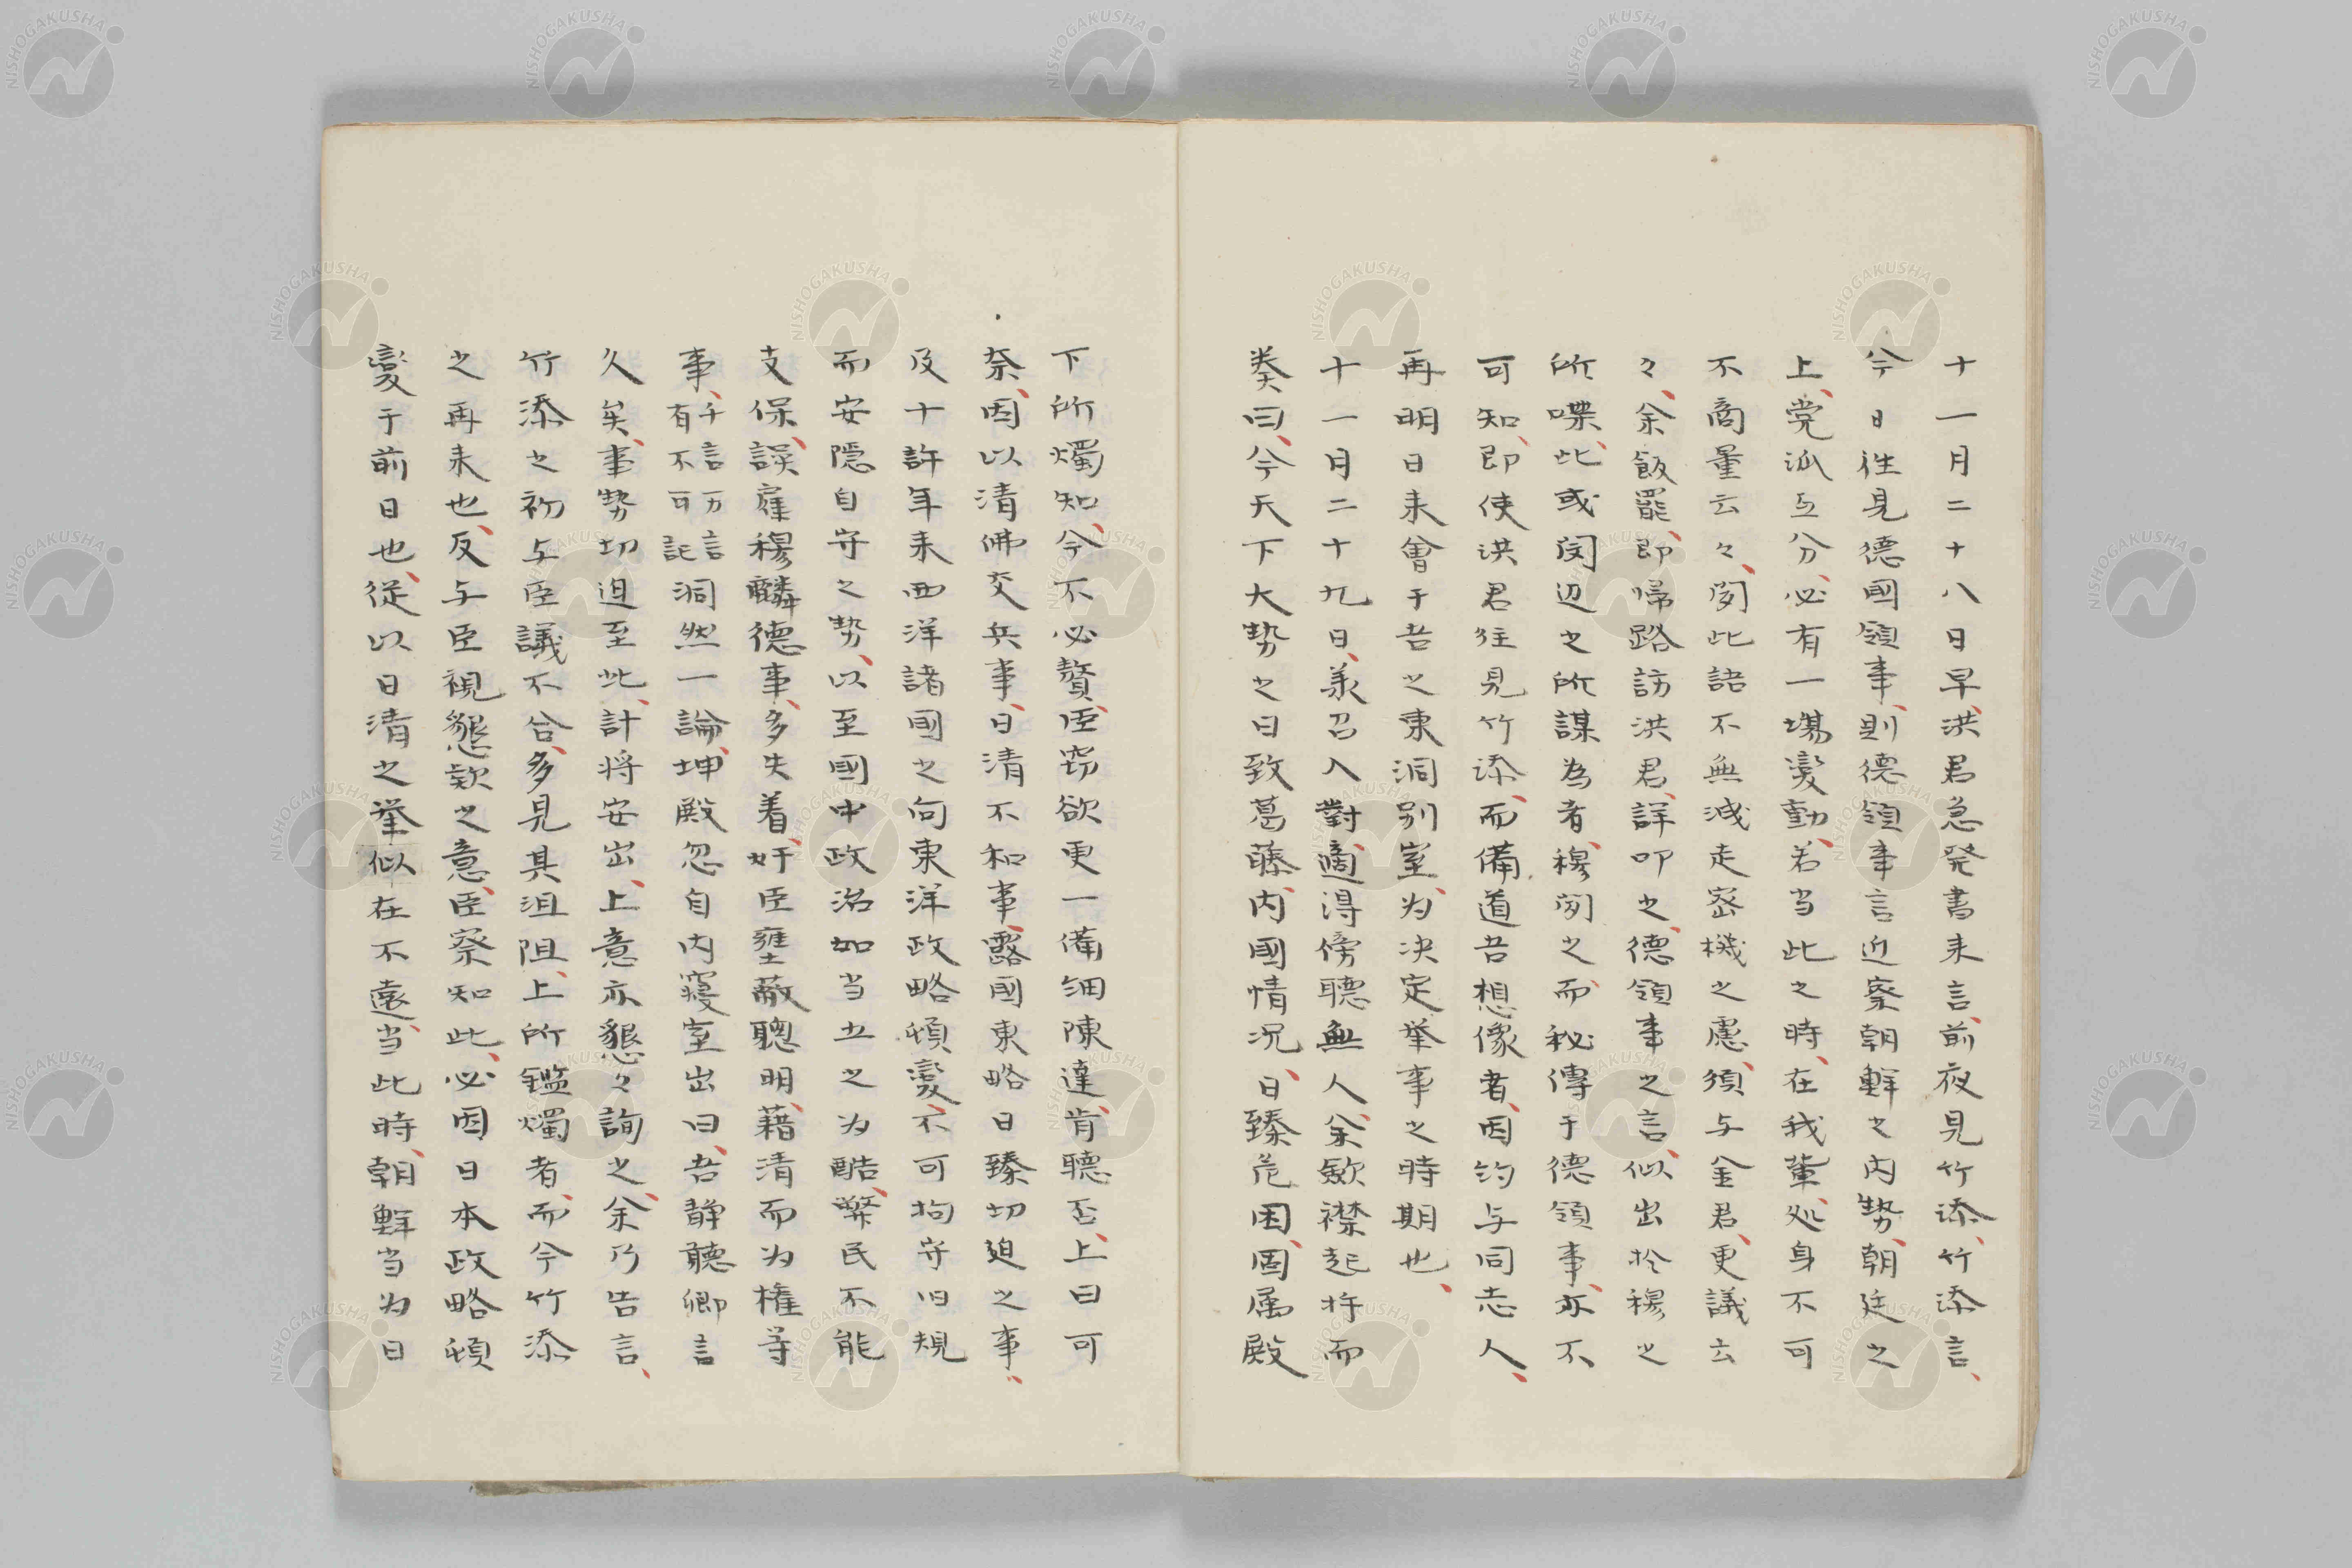 十一月二十八日早、洪君急発書来言、前夜見竹添、竹添言、
今日往見德國領事、則德領事言近察朝鮮之內勢、朝廷之
上、党派互分、必有一場変動、若当此之時、在我輩処身不可
不商量云々、閔此語不無滅走密機之慮、須与金君、更議云
々、余飯罷、即帰路訪洪君、詳叩之、德領事之言、似出於穆之
所喋、此或閔辺之所謀為者、穆閔之而秘傳于德領事、亦不
可知、即使洪君往見竹添、而備道吾想像者、因約与同志人、
再明日来會于吾之東洞別室、为决定挙事之時期也、
十一月二十九日、承召入對、適得傍聽無人、余歛襟起拝而
奏曰、今天下大勢之日致葛藤、內國情況、日臻危困、固属殿
下所燭知、今不必贅、臣窃欲更一備細陳達、肯聽否、上曰可
奈、因以清佛交兵事、日清不和事、露國東略日臻切廹之事、
及十許年来西洋諸國之向東洋政略頓変、不可拘守旧規
而安隠自守之勢、以至國中政治如当五之为酷弊民不能
支保、誤雇穆麟德事、多失着、奸臣壅蔽聰明、藉清而为権等
事、千言万言有不可記洞然一論、坤殿忽自內寢室出曰、吾静聽卿言
久矣、事勢切迫至此、計将安出、上意亦懇々詢之、余乃告言、
竹添之初与臣議不合、多見其沮阻、上所鑑燭者、而今竹添
之再来也、反与臣視懇欵之意、臣察知此、必因日本政略頓
変于前日也、従以日清之挙似在不遠、当此時、朝鮮当为日